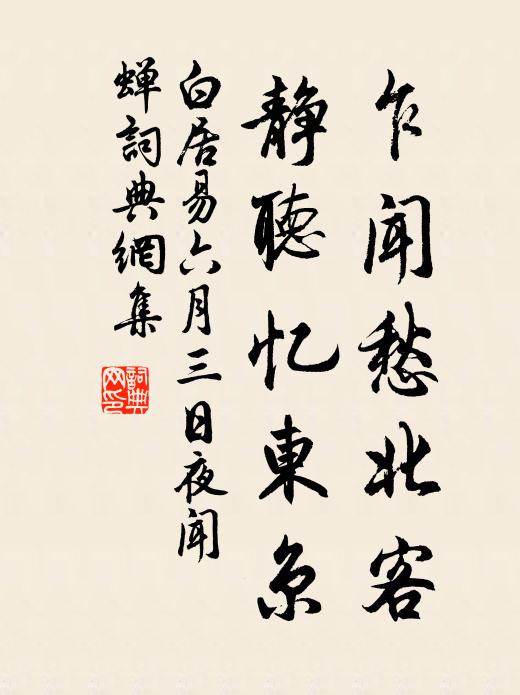 乍闻愁北客
静聽忆東京
白居易六月三日夜闻
蝉詞典網集
詞典
网印